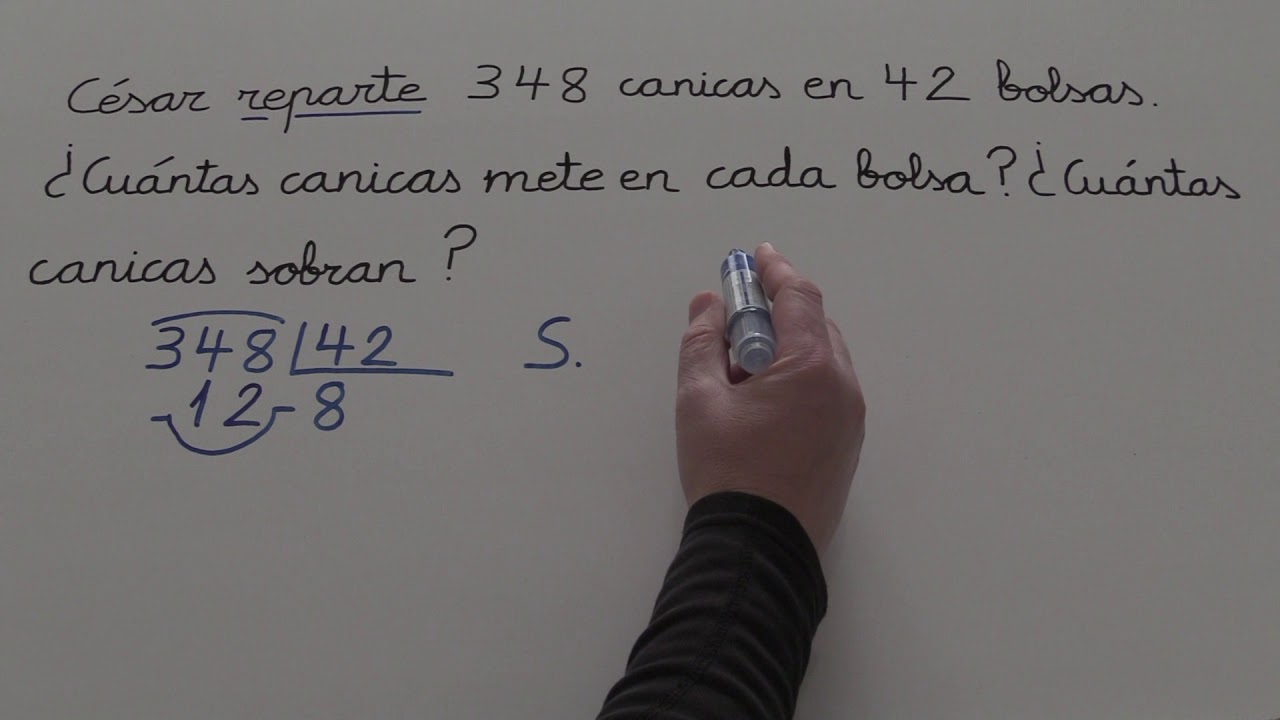 César reparte 348 canicas en 42 bolsas.
¿Cuántas canicas mete en cada bolsa? ¿Cuántas
canicas sobran?
348 |42 S.
-12- 8